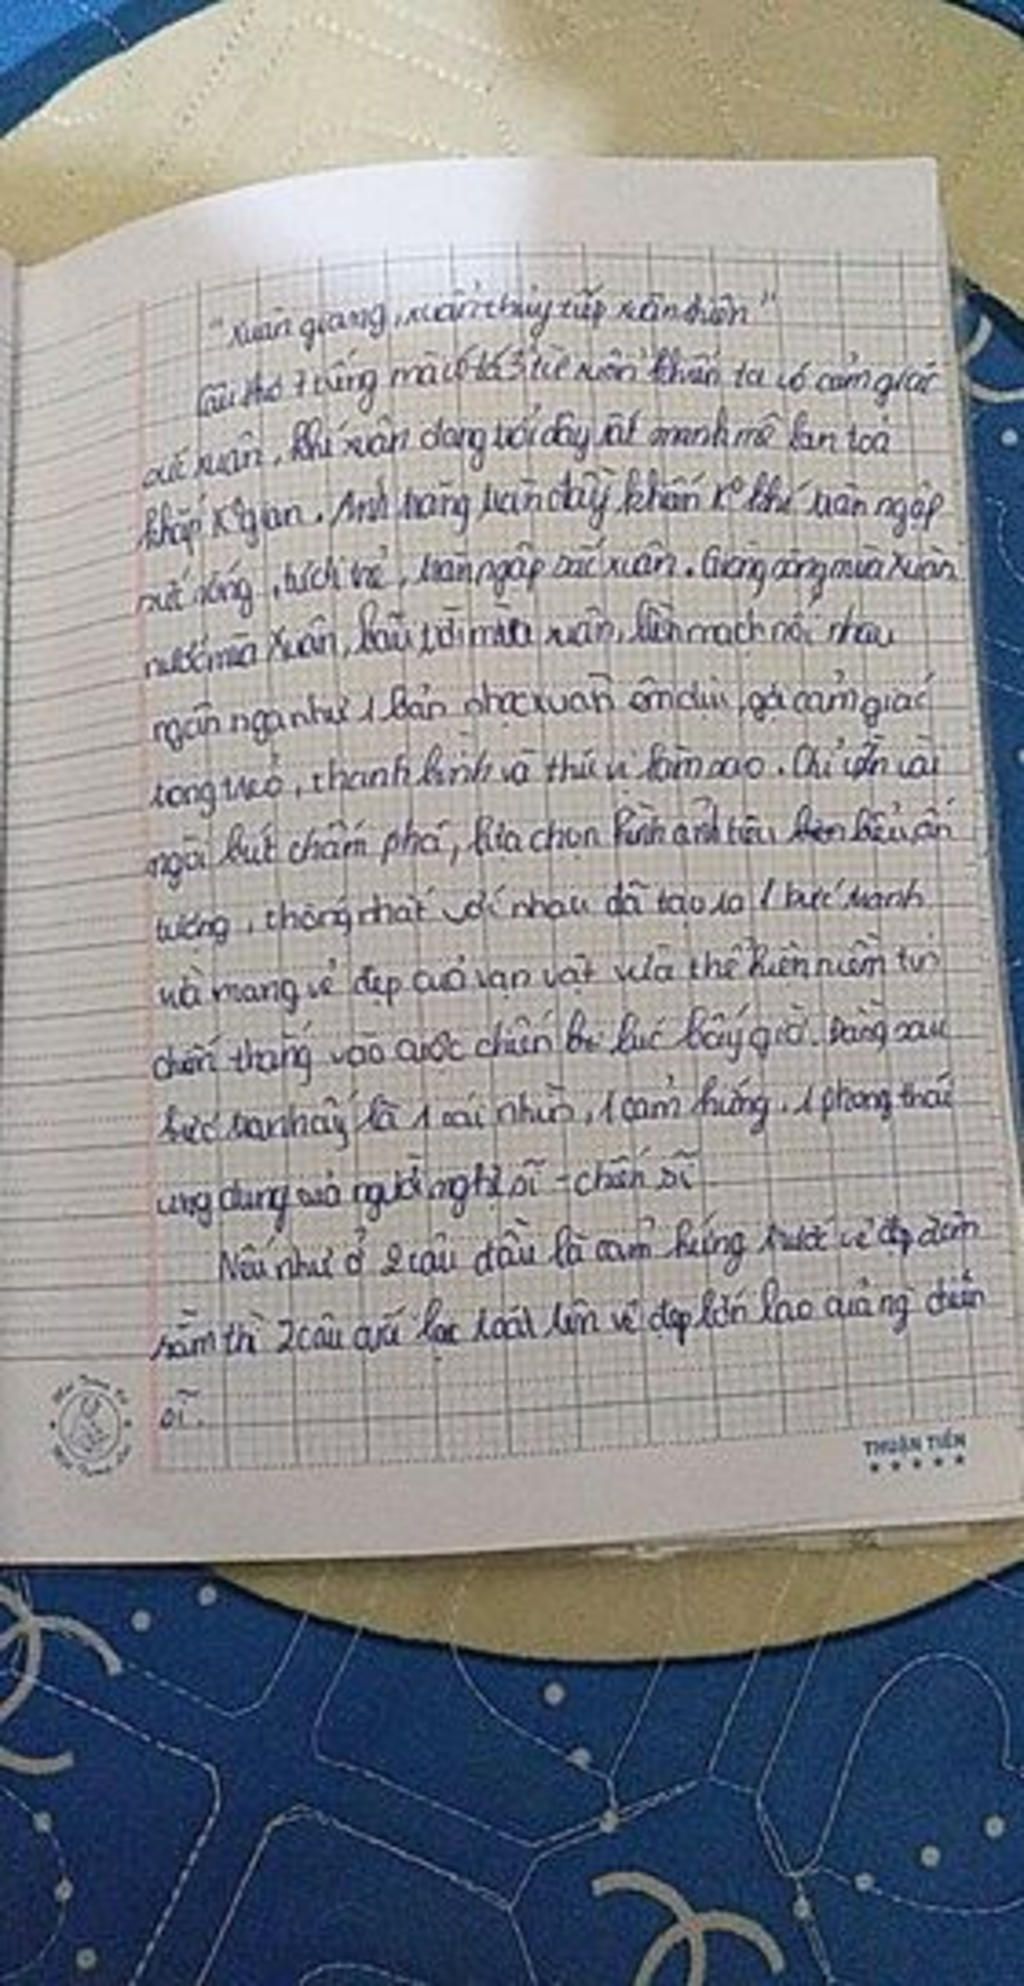 "Xuân giang, xuân thủy tiếp xuân thiên"
Câu thơ 7 tiếng mà có tới 3 từ xuân khiến ta có cảm giác
sức xuân, khí xuân đang trỗi dậy rất mạnh mẽ lan toả
khắp K° gian. Ánh trăng tràn đầy khiến K° khí xuân ngập
sức sống, tràn ngập sắc xuân. Giòng sông mùa xuân
nước mùa Xuân, bầu trời mùa xuân, liền mạch nối nhau
ngân nga như 1 bản nhạc xuân êm dịu, gợi cảm giác
trong trẻo, thanh bình và thú vị làm sao. Chỉ vẻn vài
ngòi bút chấm phá, lựa chọn hình ảnh tiêu biểu ấn
tượng, thống nhất với nhau đã tạo ra 1 bức tranh
và mang vẻ đẹp của vạn vật vừa thể hiện niềm tin
chiến thắng vào cuộc chiến lúc bấy giờ. Đằng sau
bức tranh ấy là 1 cái nhìn, 1 cảm hứng, 1 phong thái
ung dung của người nghệ sĩ - chiến sĩ
Nếu như ở 2 câu đầu là cảm hứng trước vẻ đẹp đêm
rằm thì 2 câu cuối lại toát lên vẻ đẹp lớn lao của ng chiến
sĩ.
THUẬN TIẾN